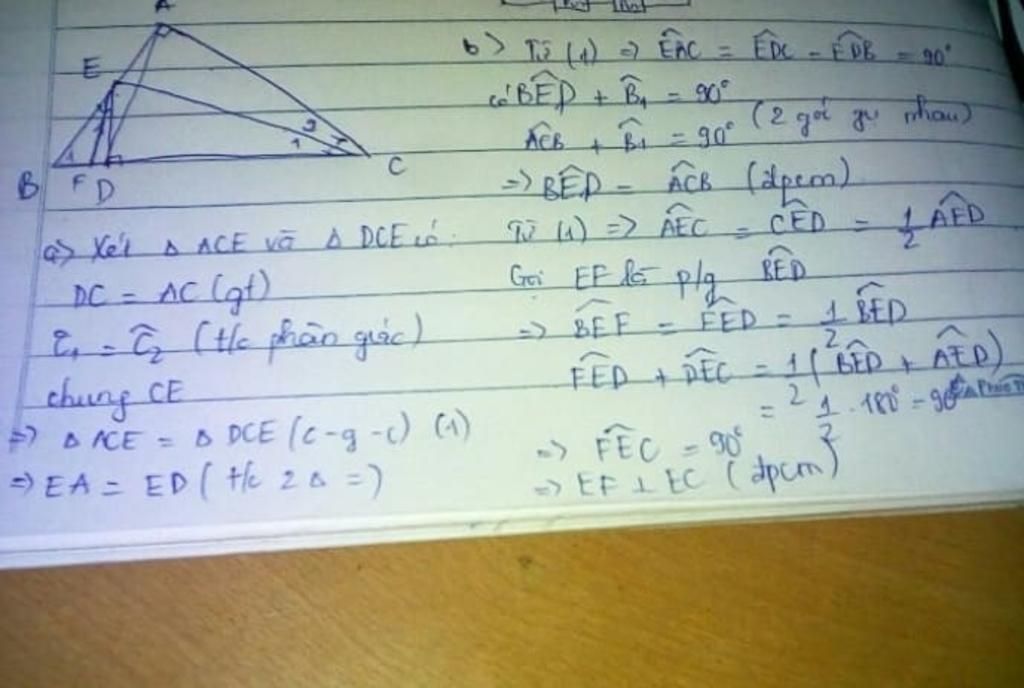 A
E
B
F D
C
1
2
1
a> Xét Δ ACE và Δ DCE có:
DC = AC (gt)
Ĉ₁ = Ĉ₂ (t/c phân giác)
chung CE
=> Δ ACE = Δ DCE (c-g-c) (1)
=> EA = ED (t/c 2 Δ =)
b> Từ (1) => EAC^ = EDC^ = EDB^ = 90°
có BED^ + B̂₁ = 90°
ACB^ + B̂₁ = 90° (2 góc phụ nhau)
=> BED^ = ACB^ (đpcm)
Từ (1) => AEC^ = CED^ = 1/2 AED^
Gọi EF là p/g BED^
=> BEF^ = FED^ = 1/2 BED^
FED^ + DEC^ = 1/2 (BED^ + AED^)
= 1/2 . 180° = 90°
=> FEC^ = 90°
=> EF ⊥ EC (đpcm)